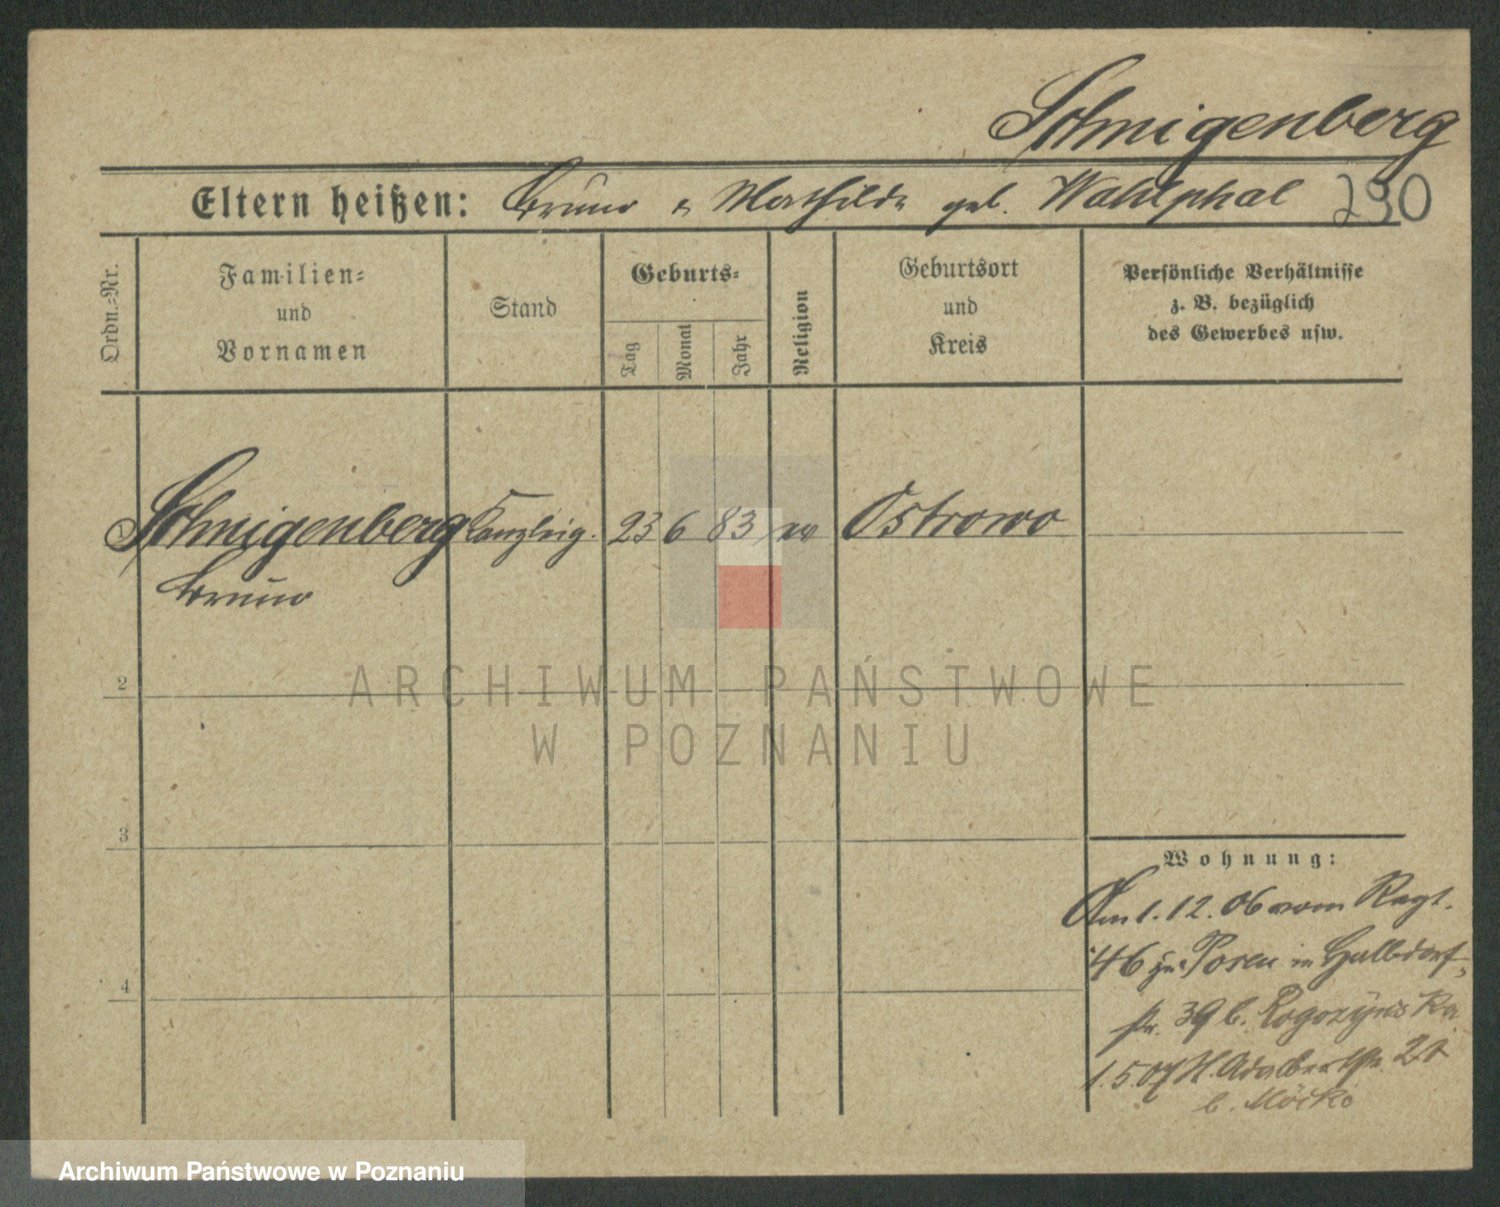 Schnigenberg
Eltern heißen: Bruno u Mathilde geb. Wahlphal 290
Ordn.-Nr.
Familien-
und
Vornamen
Stand
Geburts-
Tag
Monat
Jahr
Religion
Geburtsort
und
Kreis
Persönliche Verhältnisse
z. B. bezüglich
des Gewerbes usw.
Schnigenberg Kanzleig. 23 6 83 Ostrowo
Bruno
2
3
4
Wohnung:
Am 1.12.06 vom Regt.
46 zu Posen in Halbdorf-
str. 39 b. Rogozynska
1.5 07 Adalbertstr. 21
b.
ARCHIWUM PAŃSTWOWE
W POZNANIU
Archiwum Państwowe w Poznaniu